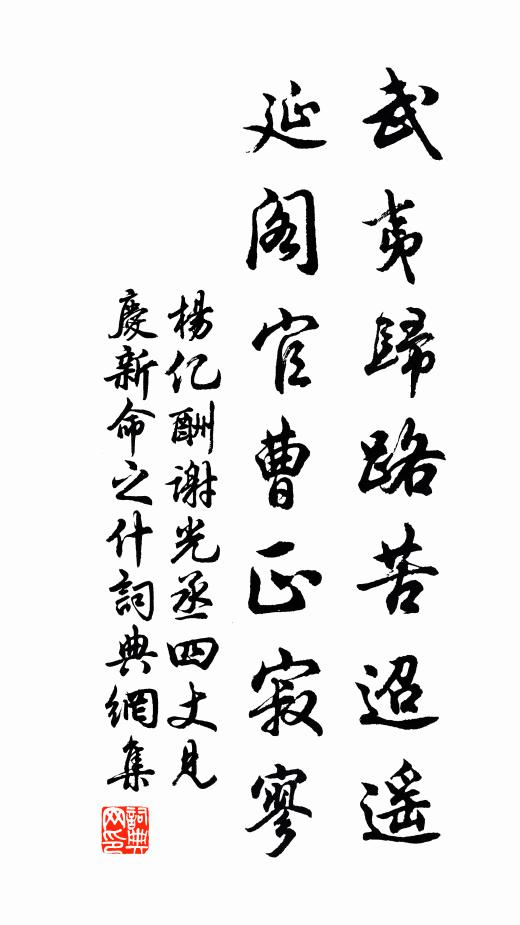 武夷歸路苦迢遥
延閣官曹正寂寥
楊億酬謝光丞四丈見
慶新命之什詞典網集
詞典網印